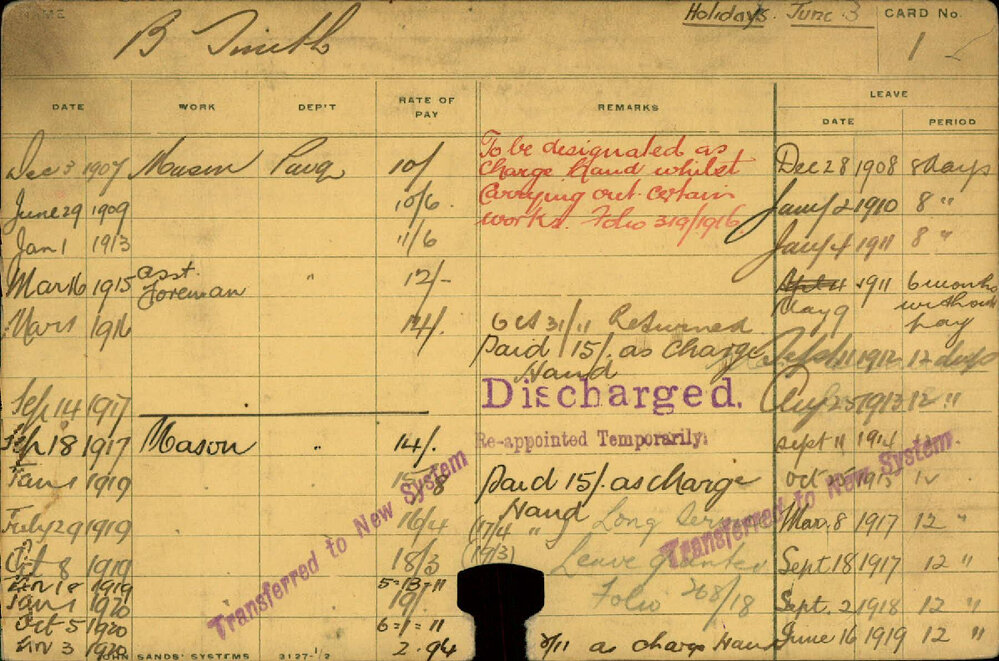 NAME
B Smith
Holidays. June 3
CARD No.
1
DATE WORK DEP'T RATE OF PAY REMARKS LEAVE
DATE PERIOD
Dec 3 1907 Mason Pavg 10/
June 29 1909 10/6
Jan 1 1913 11/6
Mar 16 1915 asst. Foreman " 12/-
Mar 5 1916 14/.
Sep 14 1917
Sep 18 1917 Mason " 14/.
Jan 1 1919 15/8
July 29 1919 16/4
Oct 8 1919 18/3
1919 5=13=11
Jan 1 1920 19/
Oct 5 1920 6=1=11
3 1920 2.94
To be designated as
Charge Hand whilst
Carrying out certain
works. Folio 319/1916
Oct 31/11 Returned
Paid 15/. as Charge
Hand
Discharged.
Re-appointed Temporarily.
Paid 15/. as Charge
Hand
(17/4 " Long Service
(19/3) Leave granted
Folio 268/18
as charge Hand
Dec 28 1908 8 days
Jany 2 1910 8 "
Jany 4 1911 8 "
1911 6 months
May 9 without
pay
Sept 11 1912 12 days
Aug 25 1913 12 "
Sept 11 1914
Oct 1915 12
Mar. 8 1917 12 "
Sept. 18 1917 12 "
Sept. 2 1918 12 "
June 16 1919 12 "
Transferred to New System
Transferred to New System.
JOHN SANDS' SYSTEMS 3127-1/2